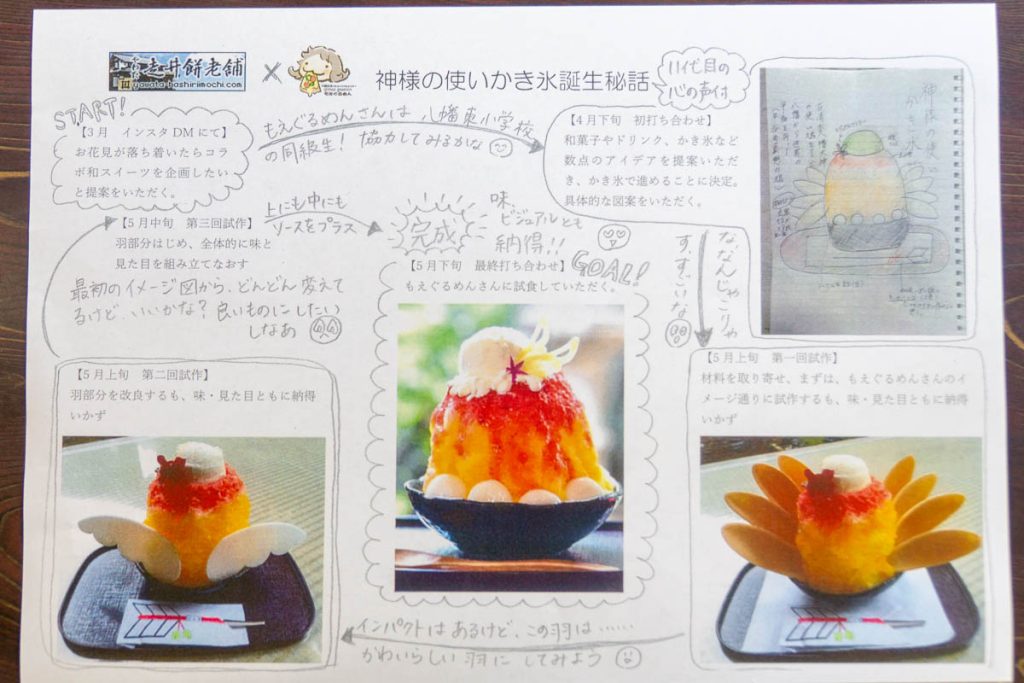 やわた走井餅老舗
yawata-hashiriimochi.com
×
神様の使いかき氷誕生秘話
11代目の
心の声付
START!
【3月　インスタDMにて】
お花見が落ち着いたらコラ
ボ和スイーツを企画したい
と提案をいただく。
もえぐるめんさんは 八幡東小学校
の同級生! 協力してみるかな
【4月下旬　初打ち合わせ】
和菓子やドリンク、かき氷など
数点のアイデアを提案いただ
き、かき氷で進めることに決定。
具体的な図案をいただく。
神様の使い
かき氷
な、なんじゃこりゃ
す、すごいな
【5月上旬　第一回試作】
材料を取り寄せ、まずは、もえぐるめんさんのイ
メージ通りに試作するも、味・見た目ともに納得
いかず
インパクトはあるけど、この羽は……
かわいらしい羽にしてみよう
【5月上旬　第二回試作】
羽部分を改良するも、味・見た目ともに納得
いかず
【5月中旬　第三回試作】
羽部分はじめ、全体的に味と
見た目を組み立てなおす
最初のイメージ図から、どんどん変えて
るけど、いいかな? 良いものにしたい
しなあ
上にも中にも
ソースをプラス
完成
味、
ビジュアルとも
納得!!
GOAL!
【5月下旬　最終打ち合わせ】
もえぐるめんさんに試食していただく。